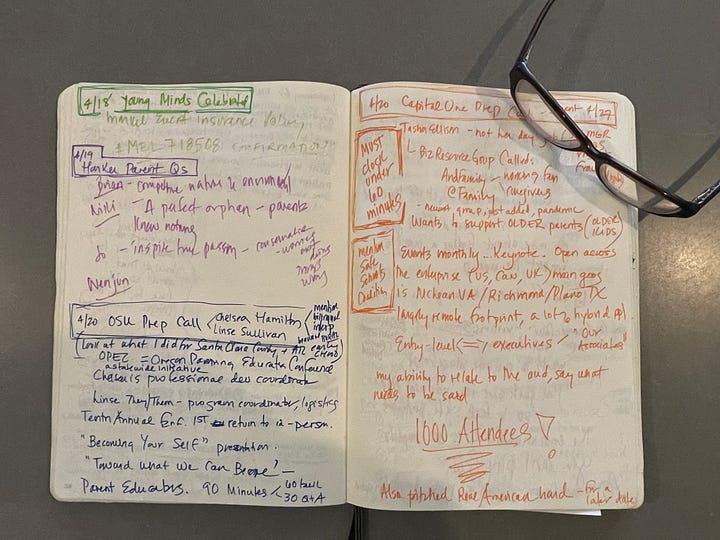 4/18 Young Minds Celebrate
Markel Event Insurance Policy
# MEL 718508 CONFIRMATION
4/19
Harker Parent Qs
Brian - competitive nature & environment
Niki - A perfect orphan - parents
Know nothing
Jo - inspire true passion - conservative
worries
Wenjun
4/20 OSU Prep Call
Chelsea Hamilton
Linse Sullivan
mention
bilingual
interp
Look at what I did for Santa Clara County +
early
OPEC = Oregon Parenting Educator Conference
a statewide initiative
Chelsea is professional dev coordinate
Linse They/Them - program coordinate, logistics
Tenth Annual Conf. 1st return to in-person.
"Becoming Your Self" presentation.
"Toward what We Can Become" -
Parent Educators. 90 Minutes
60 talk
30 Q+A
4/20 Capital One Prep Call - event 4/27
Must
close
under
60
minutes
Tasha Ellison - not her day job
MGR
Biz Resource Group Called
And Family - honoring fam
@Family caregivers
- newest group, just added, pandemic
Wants to support OLDER parents (OLDER
KIDS
mention
Safe
Schools
Coalition
Events monthly... Keynote. Open across
the enterprise (US, CAN, UK) main geos
is McLean VA / Richmond / Plano TX
largely remote footprint, a lot of hybrid
Entry-level <=> executives
"Our
Associates"
my ability to relate to the aud, say what
needs to be said
1000 Attendees!
Also pitched Rose/American hard - for a
later date